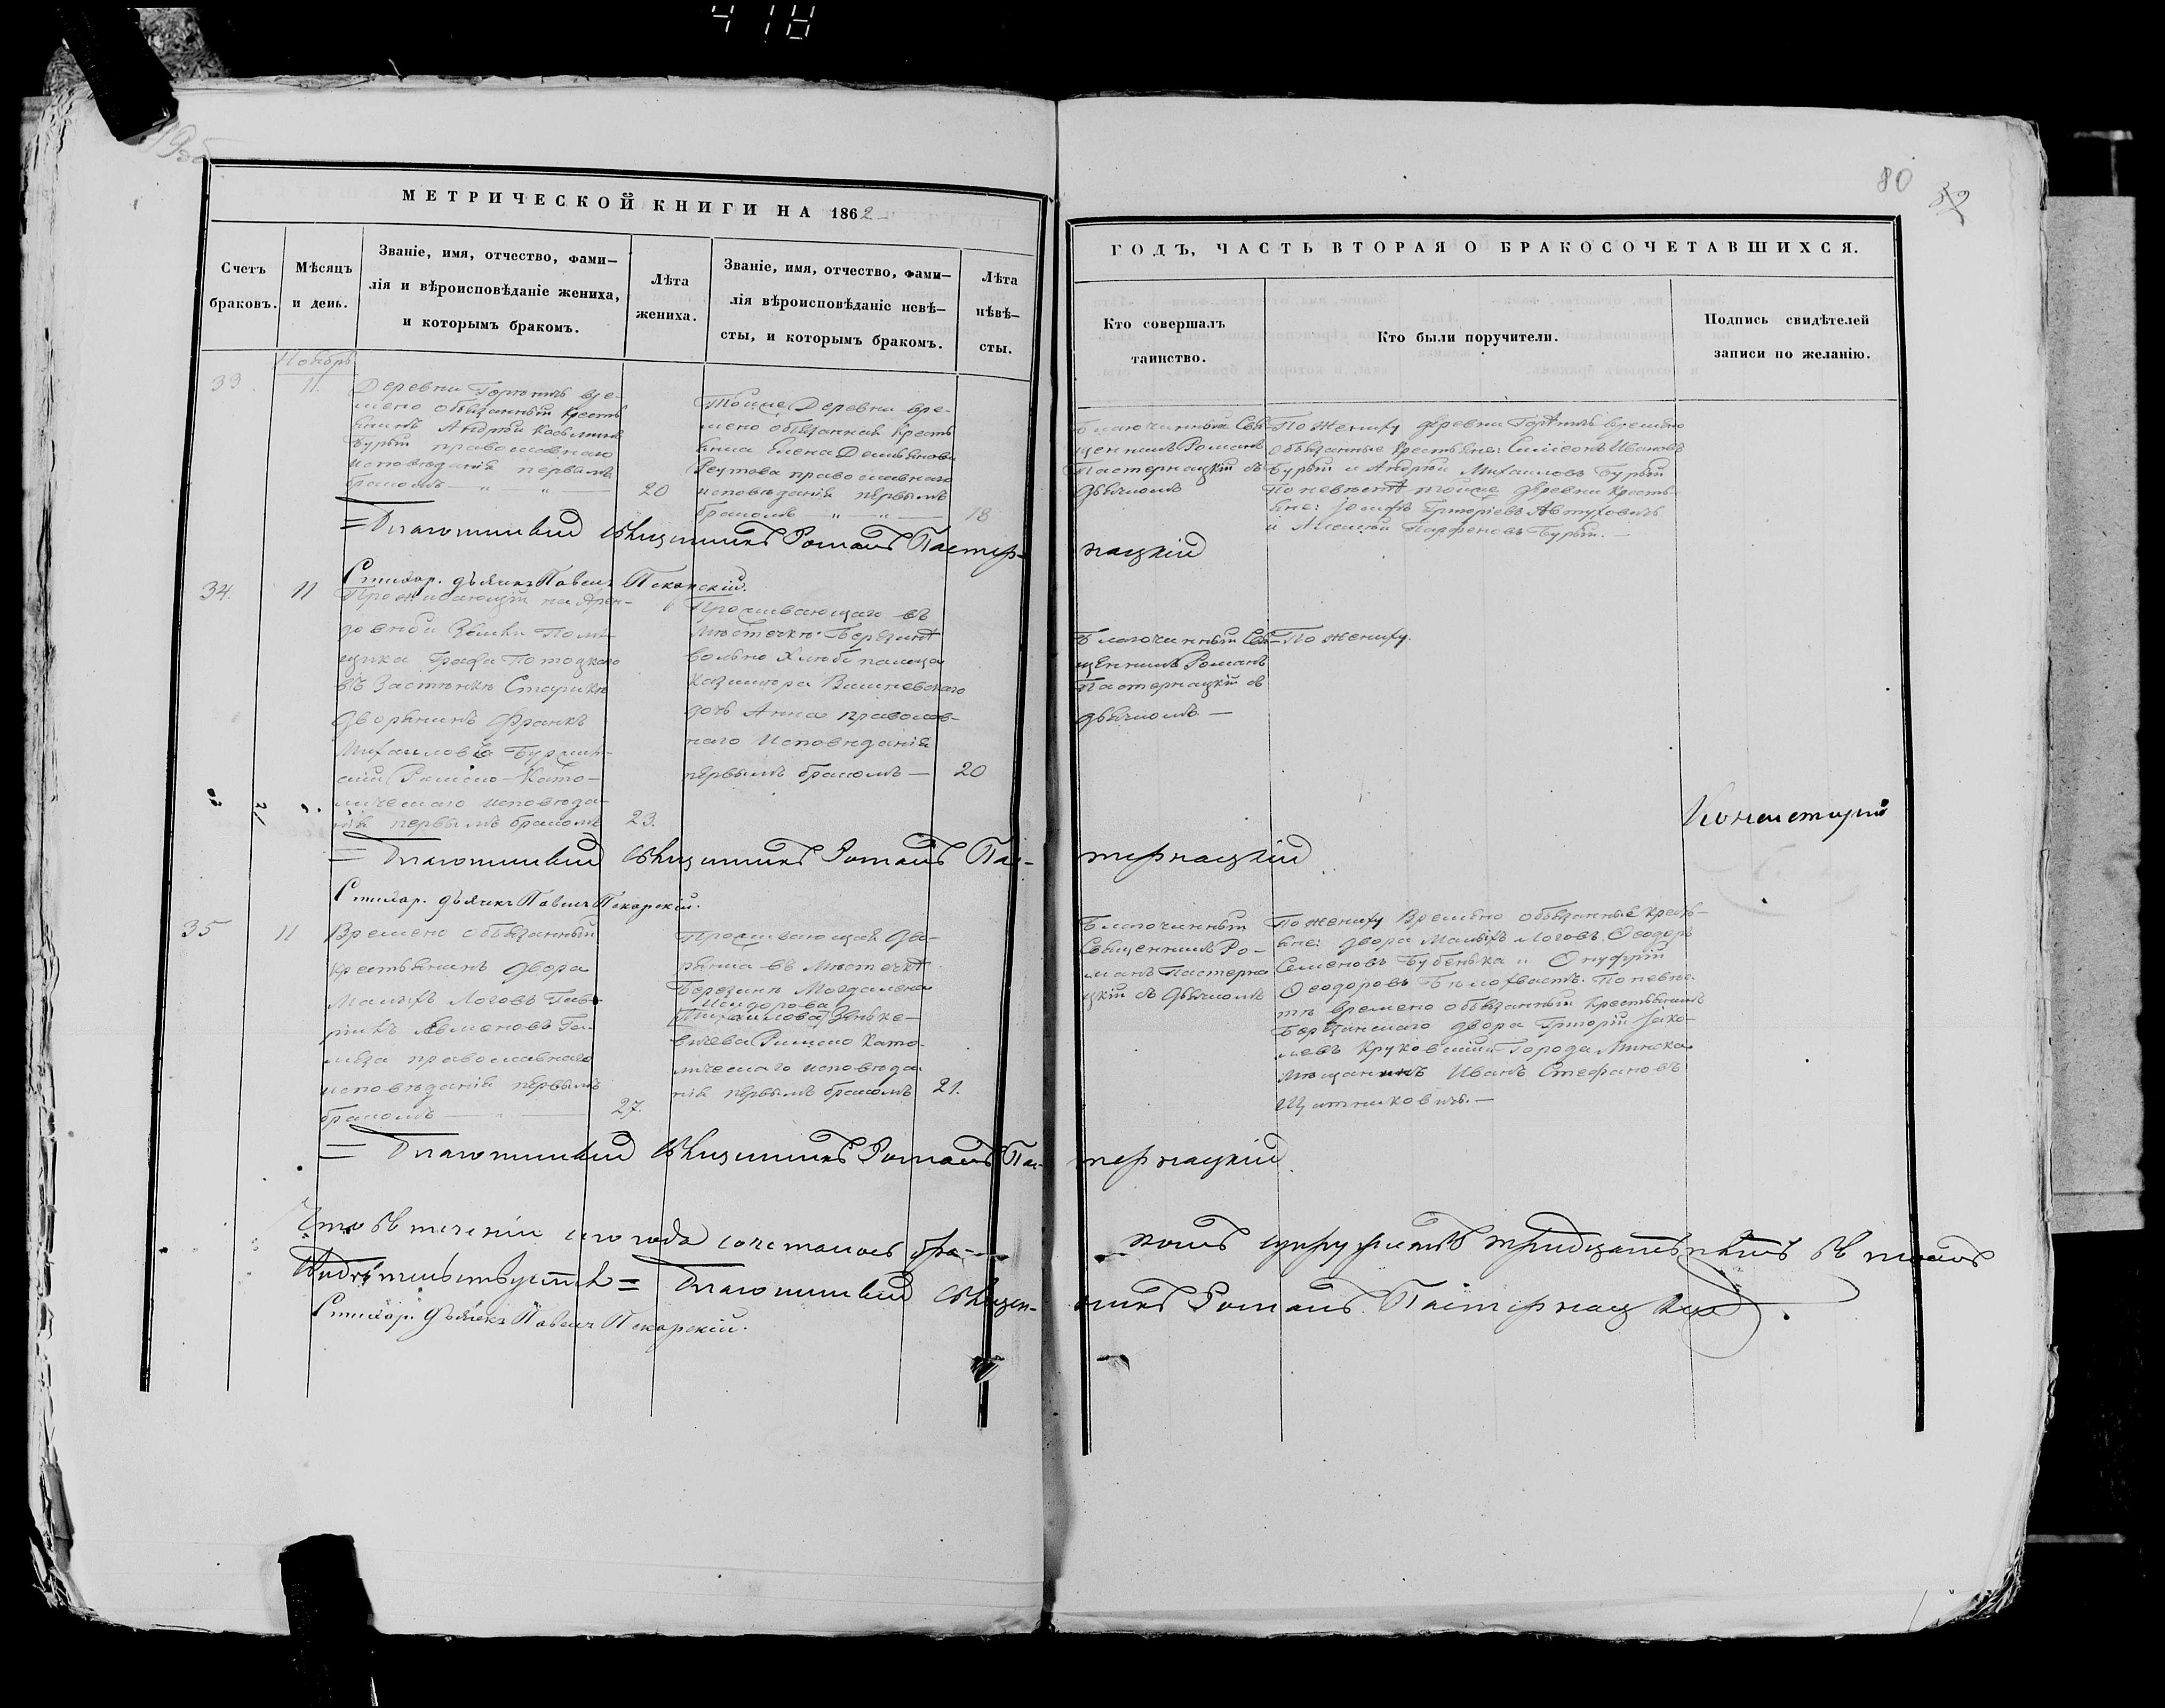 418
80
МЕТРИЧЕСКОЙ КНИГИ НА 1862
ГОДЪ, ЧАСТЬ ВТОРАЯ О БРАКОСОЧЕТАВШИХСЯ.
Счетъ
браковъ.
Мѣсяцъ
и день.
Званіе, имя, отчество, фами—
лія и вѣроисповѣданіе жениха,
и которымъ бракомъ.
Лѣта
жениха.
Званіе, имя, отчество, фами—
лія вѣроисповѣданіе невѣ—
сты, и которымъ бракомъ.
Лѣта
нѣвѣ—
сты.
Кто совершалъ
таинство.
Кто были поручители.
Подпись свидѣтелей
записи по желанію.
Ноябрь
33.
11.
Деревни вре-
мено обязанный кресть
янинъ Андрей
Бурый православнаго
исповѣданія первымъ
бракомъ — " — " —
20
Тойже Деревни вре-
мено обязанная кресть
янка Елена Демьянова
Реутова православнаго
исповѣданія первымъ
бракомъ — " —
18
Благочинный Свя-
щенникъ Романъ
Пастернацкій съ
дьячкомъ
По жениху деревни времено
обязанные крестьяне: Симеонъ Ивановъ
Бурый и Андрей Михаиловъ Бурый
По невѣстѣ тойже деревни кресть-
яне: Іосифъ Григорьевъ Автуховичъ
и Алексей Парфеновъ Бурый. —
= Благочинный Священникъ Романъ Пастер-
нацкій
Стихар. дьячекъ Павелъ Пекарскій.
34.
11
Проживающій на Арен-
довной Земли Помѣ-
щика Графа Потоцкаго
въ Застѣнкѣ Старикѣ
дворянинъ Франкъ
Михаиловъ
Римско-Като-
лическаго исповѣда-
нія первымъ бракомъ
23.
Проживающаго въ
Мѣстечкѣ Березинѣ
вольно Хлѣбопашца
Казимира Вишневскаго
дочь Анна православ-
наго Исповѣданія
первымъ бракомъ —
20
Благочинный Свя-
щенникъ Романъ
Пастернацкій съ
дьячкомъ —
По жениху.
= Благочинный Священникъ Романъ Пас-
тернацкій
Стихар. дьячекъ Павелъ Пекарскій.
35
11
Времено обязанный
крестьянинъ двора
Малыхъ Логовъ Гав-
православнаго
исповѣданія первымъ
бракомъ — " —
27.
Проживающая дво-
рянка въ Мѣстечкѣ
Березинѣ Магдалена
Исидорова
(Михаилова) Зенке-
вичева Римско Като-
лическаго исповѣда
нія первымъ бракомъ
21.
Благочинный
Священникъ Ро-
манъ Пастерна
цкій съ дьячкомъ
По жениху Времено обязанные кресть-
яне: двора Малыхъ Логовъ Ѳеодоръ
Семеновъ Бубенька и Онуфрій
Ѳеодоровъ Бѣлохвостъ. По невѣс-
тѣ времено обязанный крестьянинъ
Березинскаго двора Григорій Яко-
левъ Круковскій Города Минска
Мѣщанинъ Иванъ Стефановъ
= Благочинный Священникъ Романъ Пас-
тернацкій.
Что въ теченіи сего года сочеталось бра-
комъ супружествъ тридцать пять въ томъ
Свидѣтельствуетъ = Благочинный Священ-
никъ Романъ Пастернацкій.
Стихар. дьячекъ Павелъ Пекарскій.